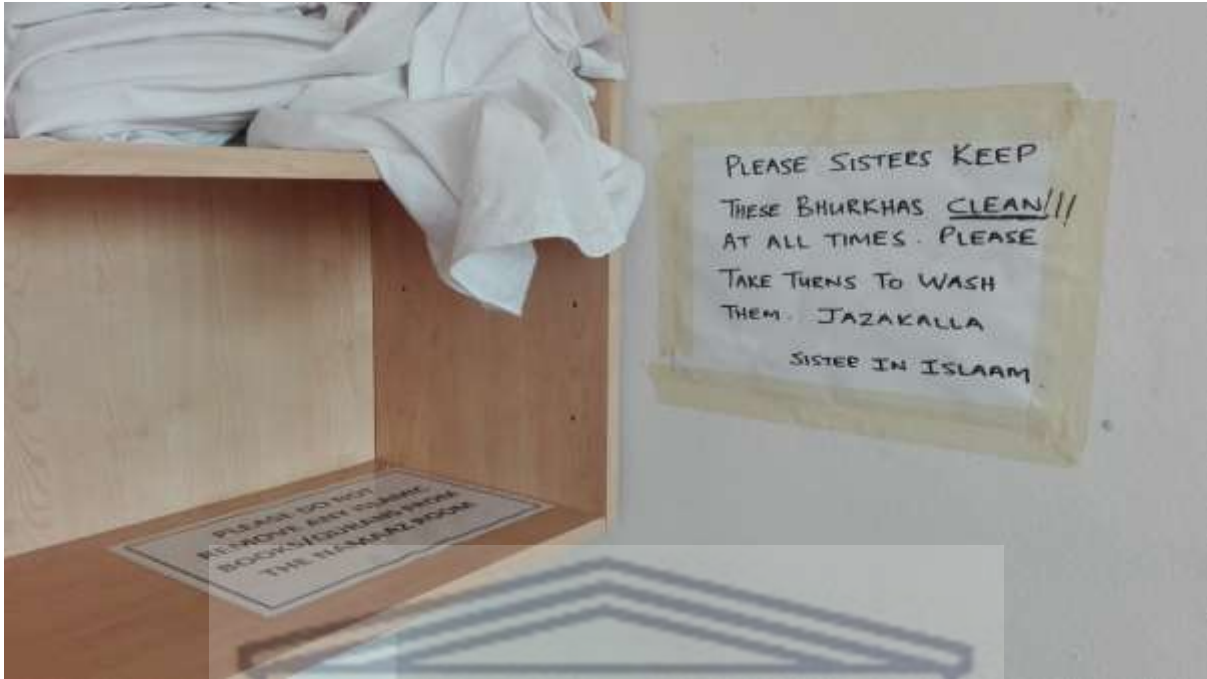 PLEASE SISTERS KEEP
THESE BHURKHAS CLEAN!!!
AT ALL TIMES. PLEASE
TAKE TURNS TO WASH
THEM. JAZAKALLA
SISTER IN ISLAAM.
PLEASE DO NOT
REMOVE ANY ISLAMIC
BOOKS/QURANS FROM
THE NAMAAZ ROOM